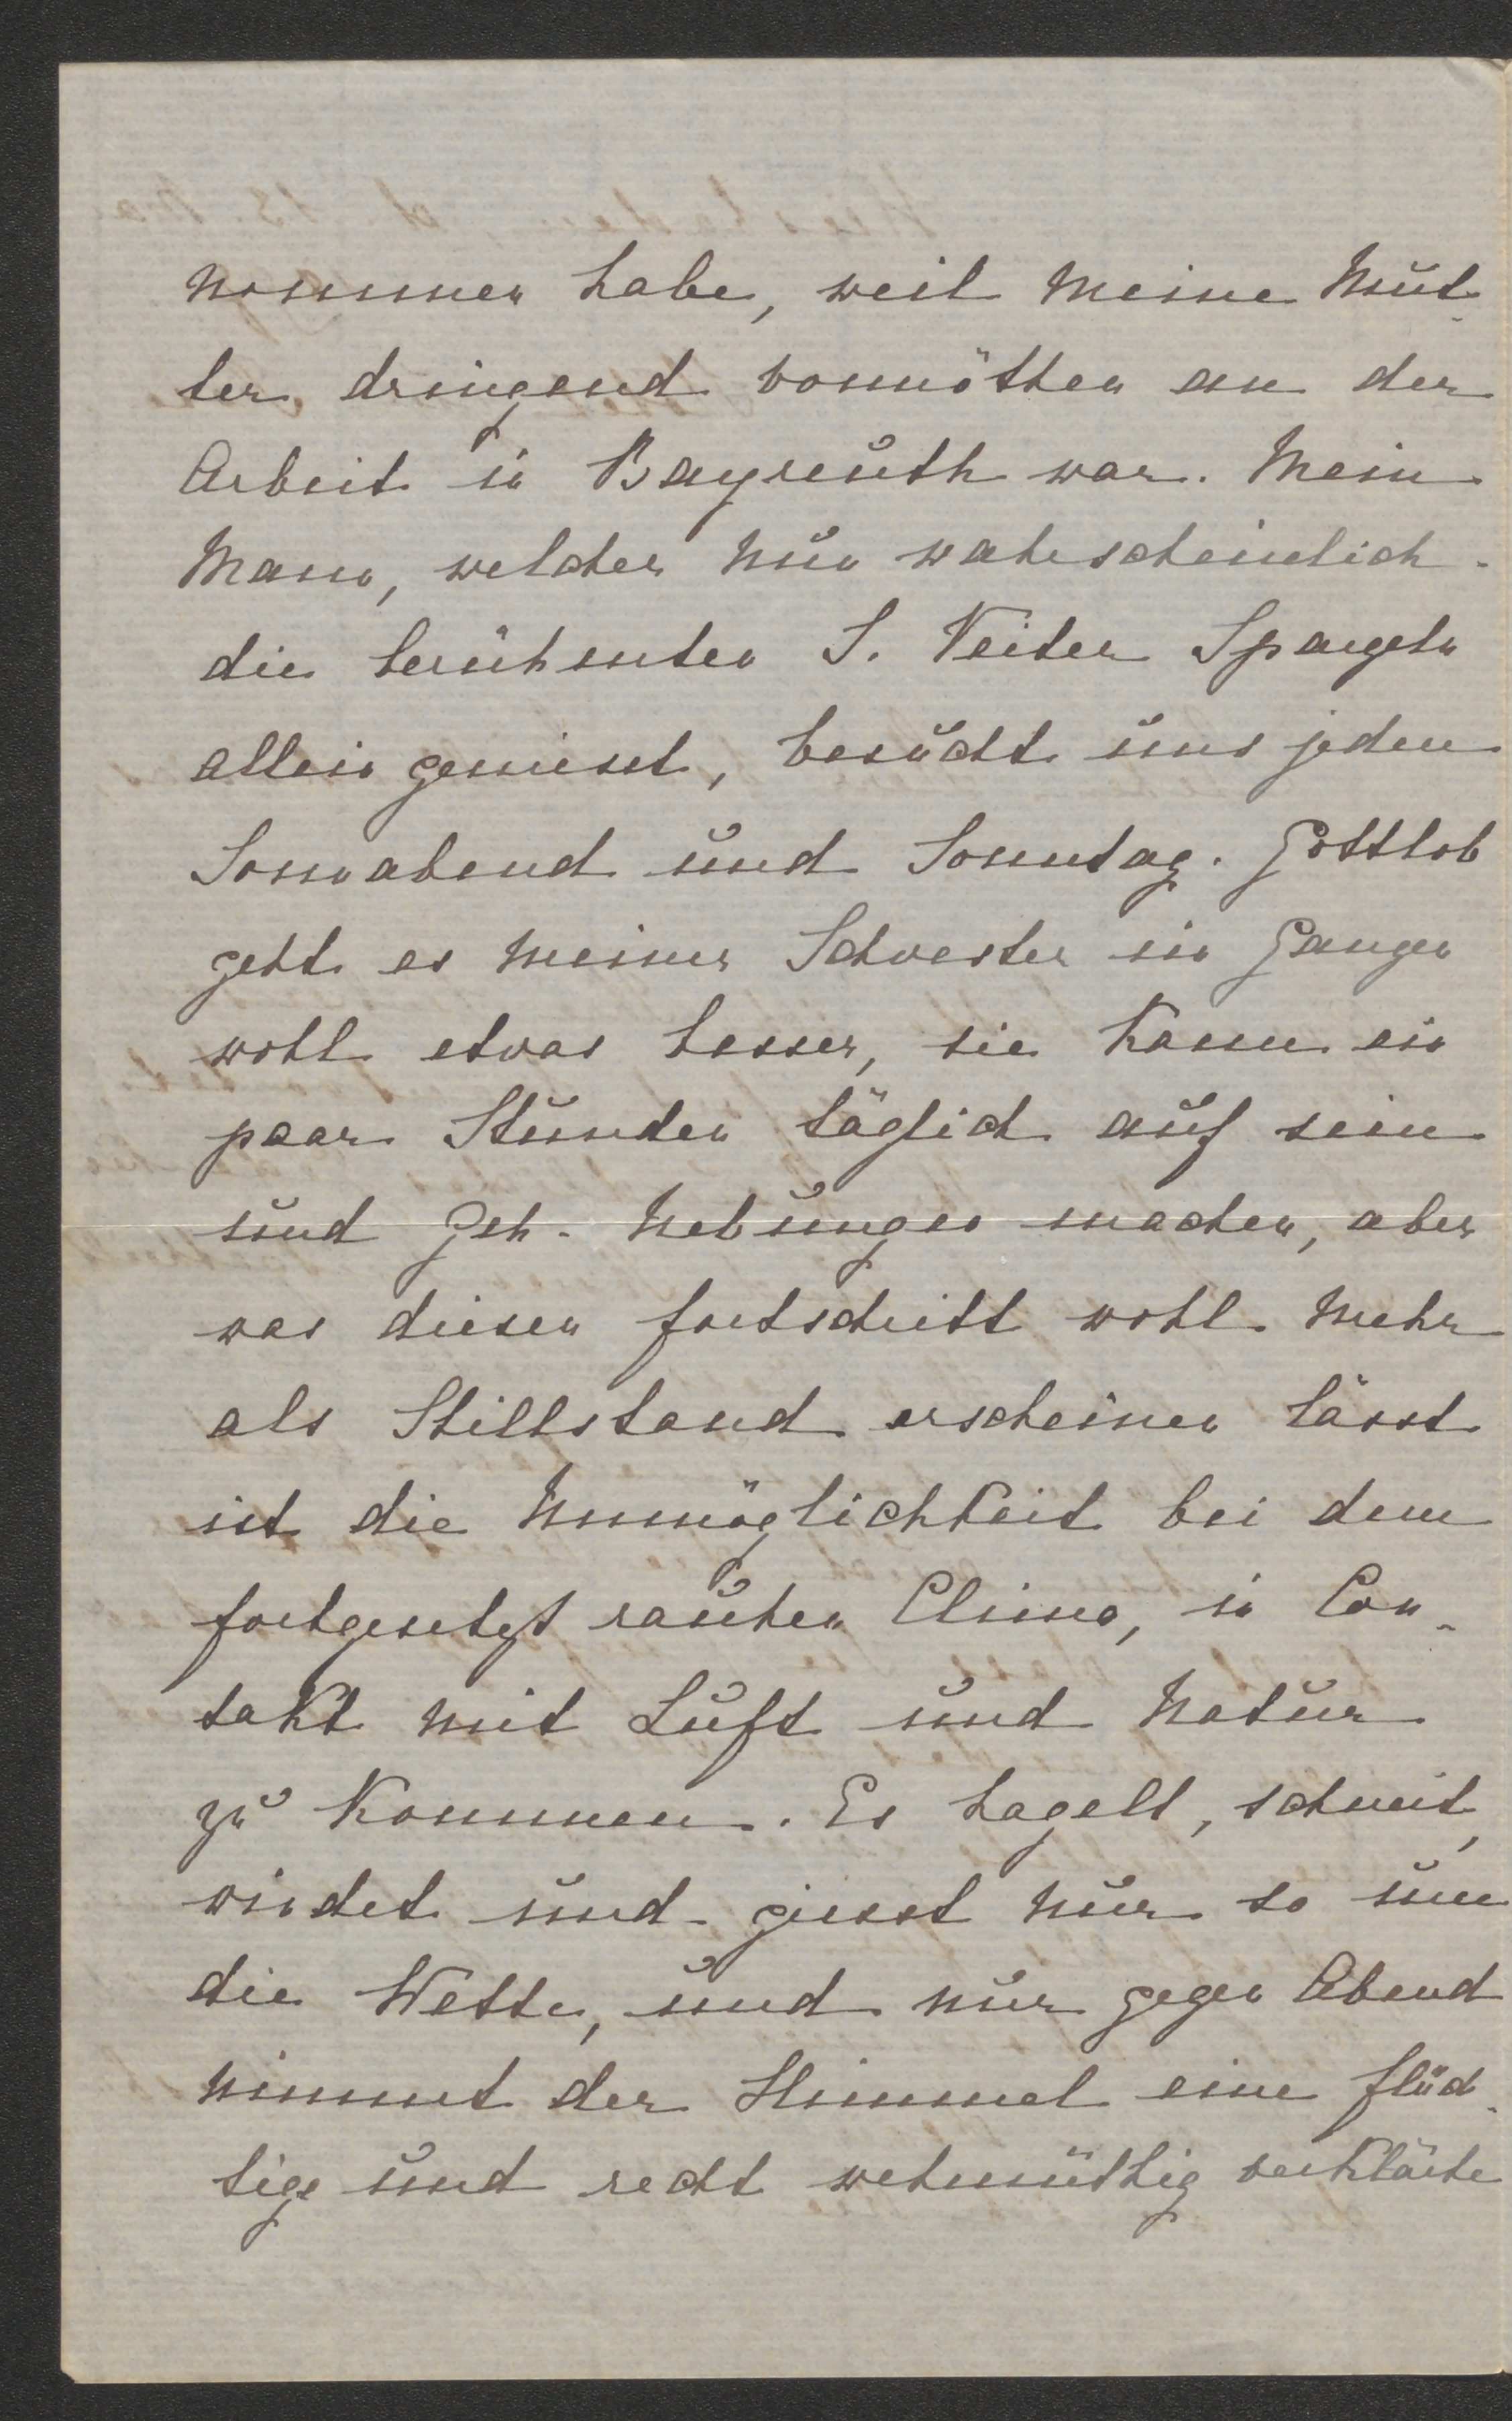 nommen habe, weil meine Mut-
ter dringend vonnöthen an der
Arbeit in Bayreuth war. Mein
Mann, welcher nun wahrscheinlich
die berühmten S. Veiter Spargeln
allein geniesst, besucht uns jeden
Sonnabend und Sonntag. Gottlob
geht es meiner Schwester im Ganzen
wohl etwas besser, sie kann ein
paar Stunden täglich auf sein
und Geh-Uebungen machen, aber
was diesen Fortschritt wohl mehr
als Stillstand erscheinen lässt
ist die Unmöglichkeit bei dem
fortgesetzt rauhen Clima, in Con-
takt mit Luft und Natur
zu kommen. Es hagelt, schneit,
windet und giesst nur so um
die Wette, und nur gegen Abend
nimmt der Himmel eine flüch-
tige und recht wehmüthig verklärte